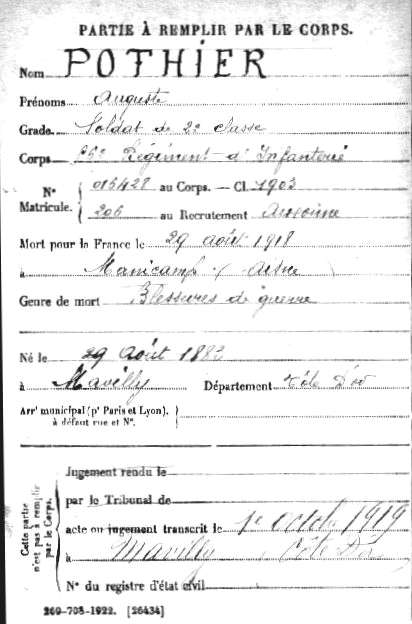 PARTIE À REMPLIR PAR LE CORPS.
Nom POTHIER
Prénoms Auguste
Grade Soldat de 2e classe
Corps Régiment d'Infanterie
N° Matricule. 015428 au Corps. — Cl. 1903
206 au Recrutement Auxonne
Mort pour la France le 29 août 1918
à Manicamp (Aisne)
Genre de mort Blessures de guerre
Né le 29 Août 1883
à Mavilly Département Côte d'Or
Arr^t municipal (p^r Paris et Lyon), à défaut rue et N°.
Cette partie n'est pas à remplir par le Corps.
Jugement rendu le
par le Tribunal de
acte ou jugement transcrit le 1e octob 1919
à Mavilly Côte d'Or
N° du registre d'état civil
269-708-1922. [26434]